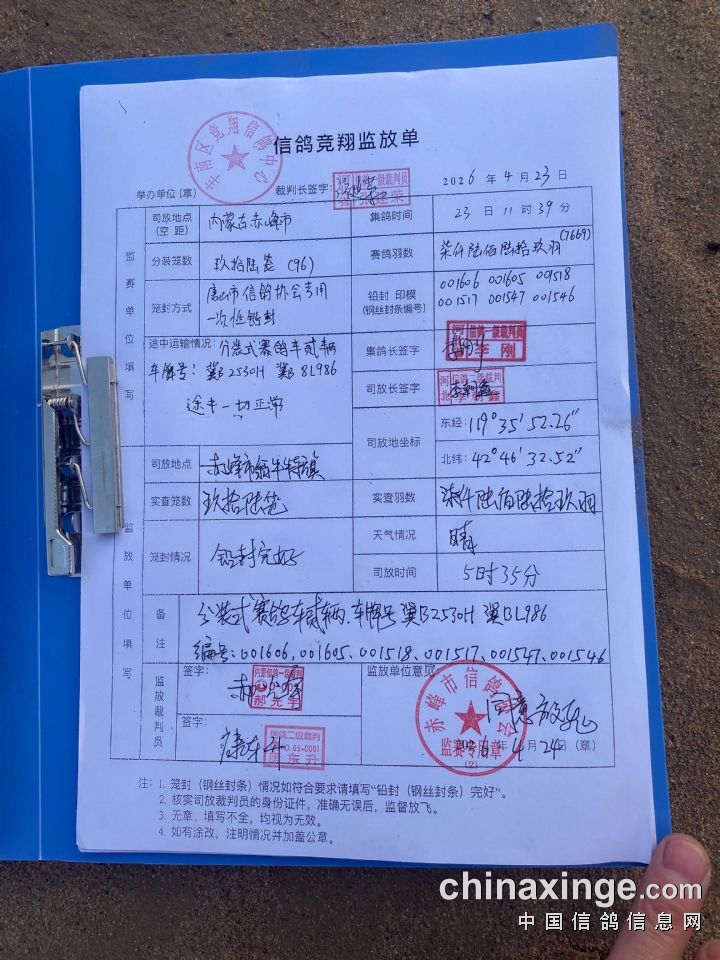 信鸽竞翔监放单
丰南区竞翔信鸽中心
举办单位(章) 裁判长签字: 2026 年 4 月 23 日
司放地点(空距) 内蒙古赤峰市 集鸽时间 23 日 11 时 39 分
监赛单位填写
分装笼数 玖拾陆笼 (96) 赛鸽羽数 柒仟陆佰陆拾玖羽 (7669)
笼封方式 唐山市信鸽协会专用 一次性铅封
铅封 印模 (钢丝封条编号) 001606 001605 001518
001517 001547 001546
途中运输情况: 分装式赛鸽车贰辆
车牌号: 冀B2530H 冀B8L986
途中一切正常
集鸽长签字 李刚
司放长签字
司放地坐标 东经: 119° 35′ 52.26″
北纬: 42° 46′ 32.52″
监放单位填写
司放地点 赤峰市翁牛特旗
实查笼数 玖拾陆笼 实查羽数 柒仟陆佰陆拾玖羽
笼封情况 铅封完好 天气情况 晴
司放时间 5时35分
备注 分装式赛鸽车贰辆.车牌号 冀B2530H 冀BL986
编号:001606、001605、001518、001517、001547、001546
监放裁判员 签字: 郝先宇
签字: 康东升
信鸽二级裁判
监放单位意见: 同意放飞
赤峰市信鸽
监赛专用章
(2)
年 4 月 24 日 (章)
注: 1. 笼封(钢丝封条)情况如符合要求请填写“铅封(钢丝封条)完好”。
2. 核实司放裁判员的身份证件,准确无误后,监督放飞。
3. 无章、填写不全,均视为无效。
4. 如有涂改,注明情况并加盖公章。
chinaxinge.com
中国信鸽信息网